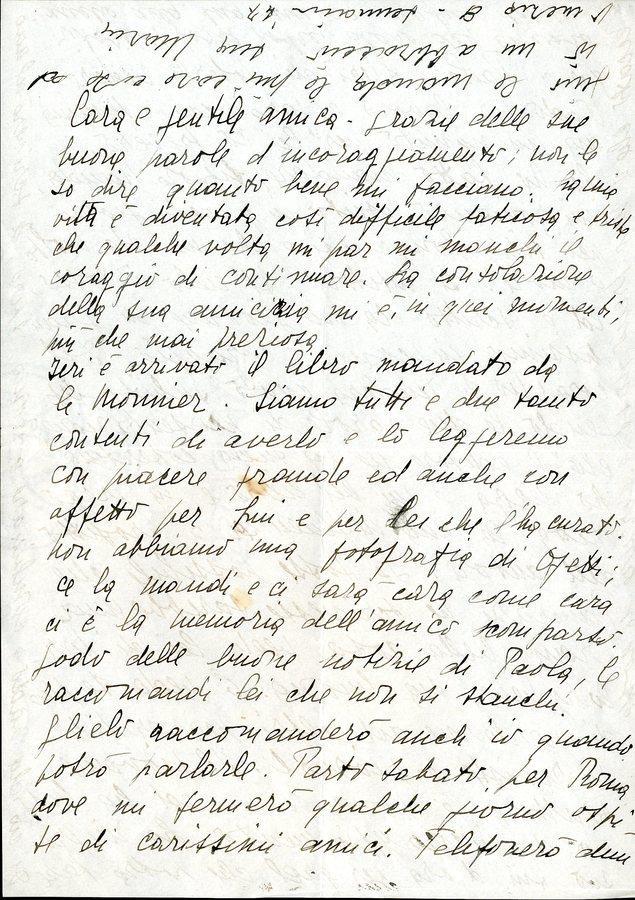 Cara e gentile amica - grazie delle sue
buone parole d'incoraggiamento; non le
so dire quanto bene mi facciano. La mia
vita è diventata così difficile faticosa e triste
che qualche volta mi par mi manchi il
coraggio di continuare. La consolazione
della sua amicizia mi è, in quei momenti,
più che mai preziosa.
Ieri è arrivato il libro mandato da
le Monnier. Siamo tutti e due tanto
contenti di averlo e lo leggeremo
con piacere grande ed anche con
affetto per lui e per lei che l'ha curato.
non abbiamo una fotografia di Ojetti;
ce la mandi e ci sarà cara come cara
ci è la memoria dell'amico scomparso.
Godo delle buone notizie di Paola, le
raccomandi lei che non si stanchi.
glielo raccomanderò anch'io quando
potrò parlarle. Parto sabato per Roma
dove mi fermerò qualche giorno ospi
te di carissimi amici. Telefonerò
mi abbracci sua Maria
più le manda le più care cose